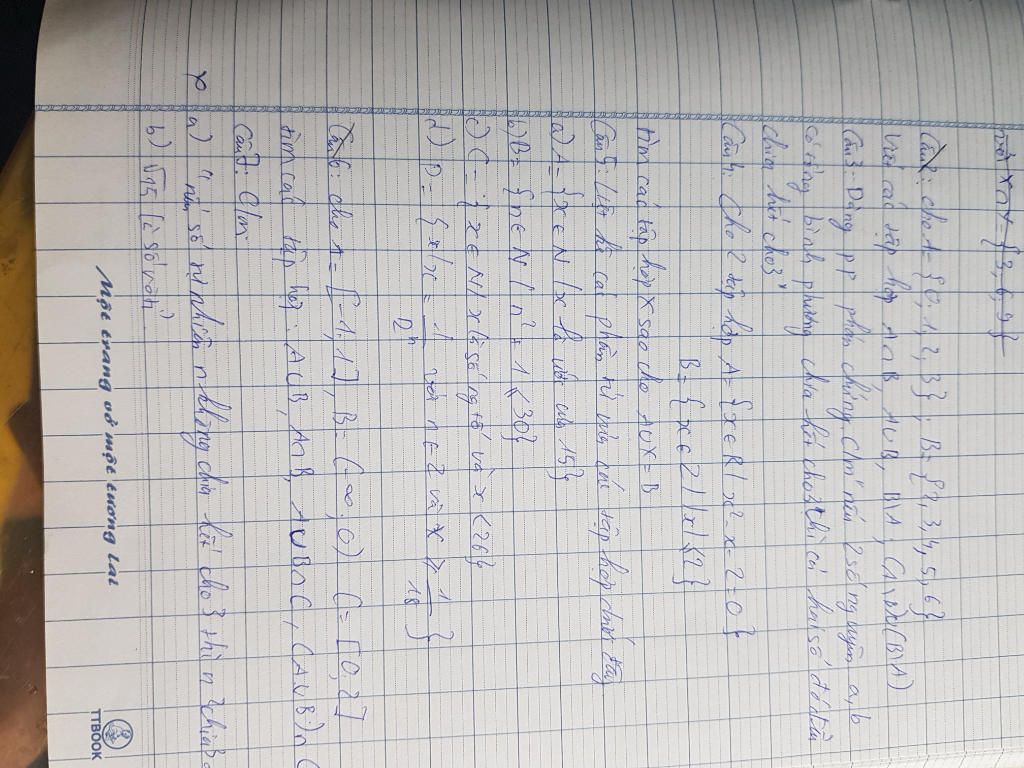 X = {3, 6, 9}
Câu 2: cho A = {0, 1, 2, 3}; B = {2, 3, 4, 5, 6}
Viết các tập hợp A∩B A∪B, B\A;
Câu 3: Dùng pp phản chứng cm nếu 2 số nguyên a, b
có tổng bình phương chia hết cho 3 thì cả hai số đó đều
chia hết cho 3"
Câu 4: Cho 2 tập hợp A = {x ∈ R | x² - x - 2 = 0}
B = {x ∈ Z | |x| ≤ 2}
tìm các tập hợp X sao cho A∪X = B
Câu 5: Liệt kê các phần tử của các tập hợp dưới đây
a) A = {x ∈ N | x là ước của 15}
b) B = {n ∈ N | n² + 1 ≤ 30}
c) C = {x ∈ N | x là số ng tố và x < 26}
d) D = {x | x = 1/2ⁿ với n ∈ Z và x ≥ 1/18}
Câu 6: cho A = [-1, 1], B = (-∞, 0) C = [0, 2]
tìm các tập hợp: A∪B, A∩B, A∪B∩C, (A∪B)∩C
Câu 7: C/m:
a) "nếu số tự nhiên n không chia hết cho 3 thì n² chia 3
b) √15 là số vô tỉ
Một trang vở một tương lai
TTBOOK